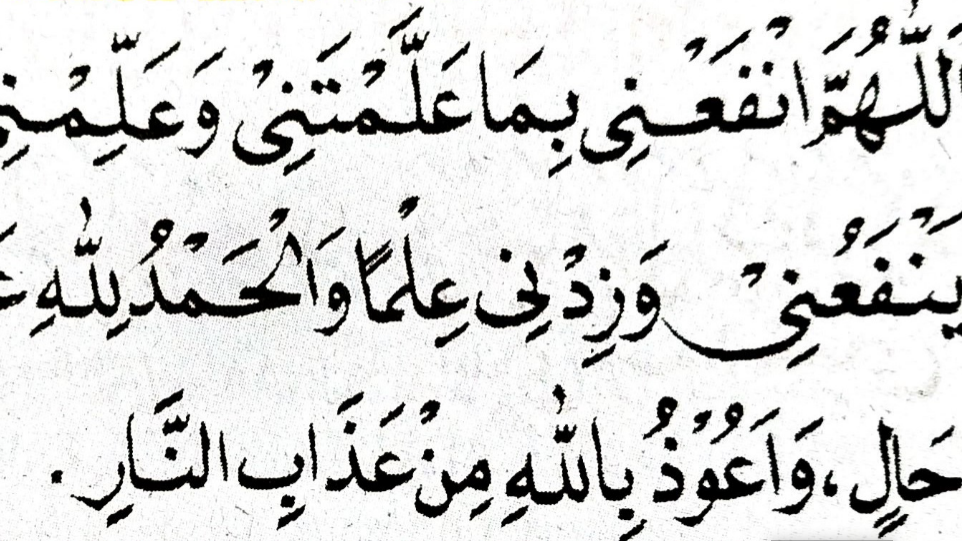 اَللّٰهُمَّ انْفَعْنِى بِمَا عَلَّمْتَنِىْ وَعَلِّمْنِىْ
يَنْفَعُنِىْ وَزِدْنِى عِلْمًا وَالْحَمْدُ لِلّٰهِ
حَالٍ، وَاَعُوْذُ بِاللّٰهِ مِنْ عَذَابِ النَّارِ.